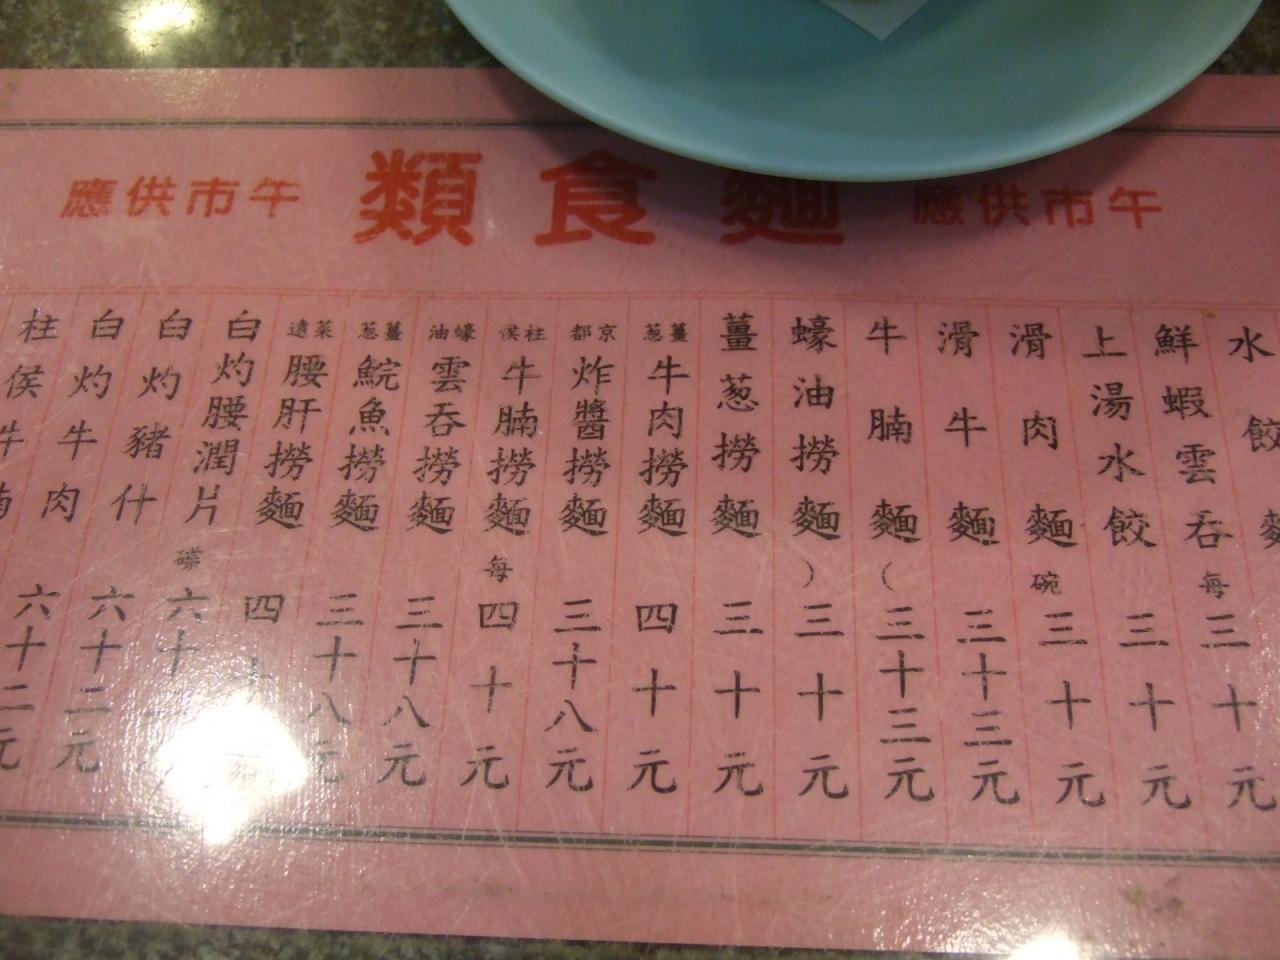 午市供應 麵食類 午市供應
水餃麵
鮮蝦雲吞 每 三十元
上湯水餃 三十元
滑肉麵 碗 三十元
滑牛麵 三十三元
牛腩麵 （ 三十三元
蠔油撈麵 ） 三十元
薑葱撈麵 三十元
薑葱牛肉撈麵 四十元
京都炸醬撈麵 三十八元
柱侯牛腩撈麵 每 四十元
蠔油雲吞撈麵 三十八元
薑葱鯇魚撈麵 三十八元
菜遠腰肝撈麵 四
白灼腰潤片 碟 六十
白灼豬什 六十二元
白灼牛肉 六十二元
柱侯牛腩